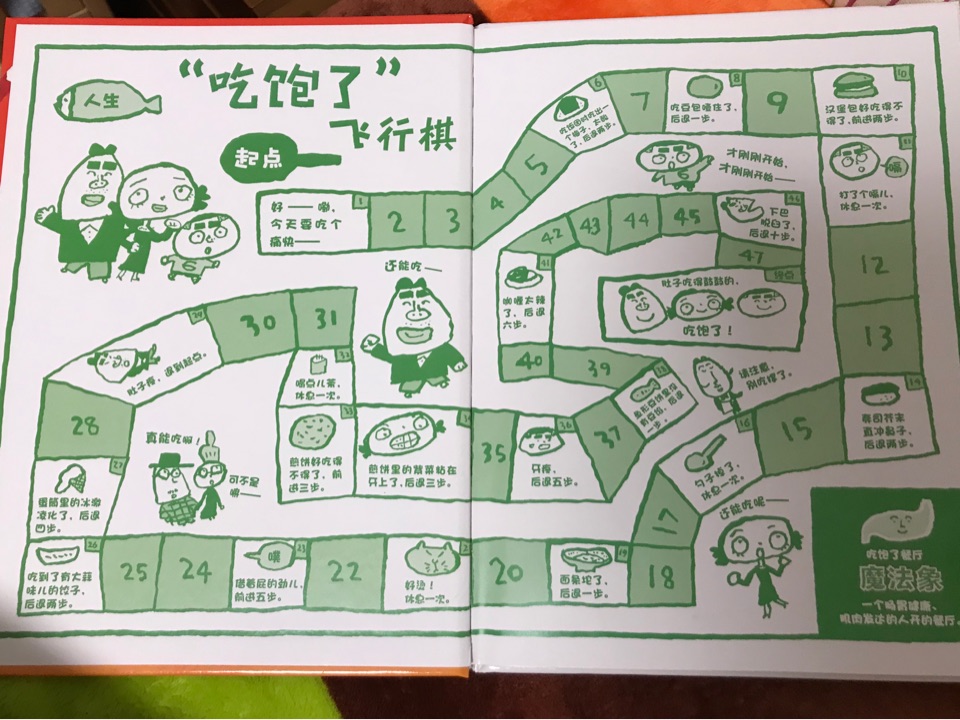 人生
“吃饱了”
飞行棋
起点
1
好——嘞,
今天要吃个
痛快——
2
3
4
5
6
了,后退两步。
7
8
吃豆包噎住了,
后退一步。
9
10
汉堡包好吃得不
得了,前进两步。
11
嗝
打了个嗝儿,
休息一次。
12
13
14
寿司芥末
直冲鼻子,
后退两步。
15
16
勺子掉了,
休息一次。
17
18
19
面条坨了,
后退一步。
20
好烫!
休息一次。
22
23
噗
借着屁的劲儿,
前进五步。
24
25
26
吃到了有大蒜
味儿的饺子,
后退两步。
27
蛋筒里的冰激
凌化了,后退
四步。
28
29
肚子疼,退到起点。
30
31
32
喝点儿茶,
休息一次。
33
煎饼好吃得
不得了,前
进三步。
34
煎饼里的葱菜粘在
牙上了,后退三步。
35
36
牙疼,
后退五步。
37
一步。
39
40
41
咖喱太辣
了,后退
六步。
42
43
44
45
46
下巴
脱臼了,
后退十步。
47
终点
肚子吃得鼓鼓的,
吃饱了!
才刚刚开始,
才刚刚开始——
还能吃——
真能吃啊!
可不是
嘛——
请注意,
别吃撑了。
还能吃呢——
吃饱了餐厅
魔法象
一个肠胃健康、
肌肉发达的人开的餐厅。